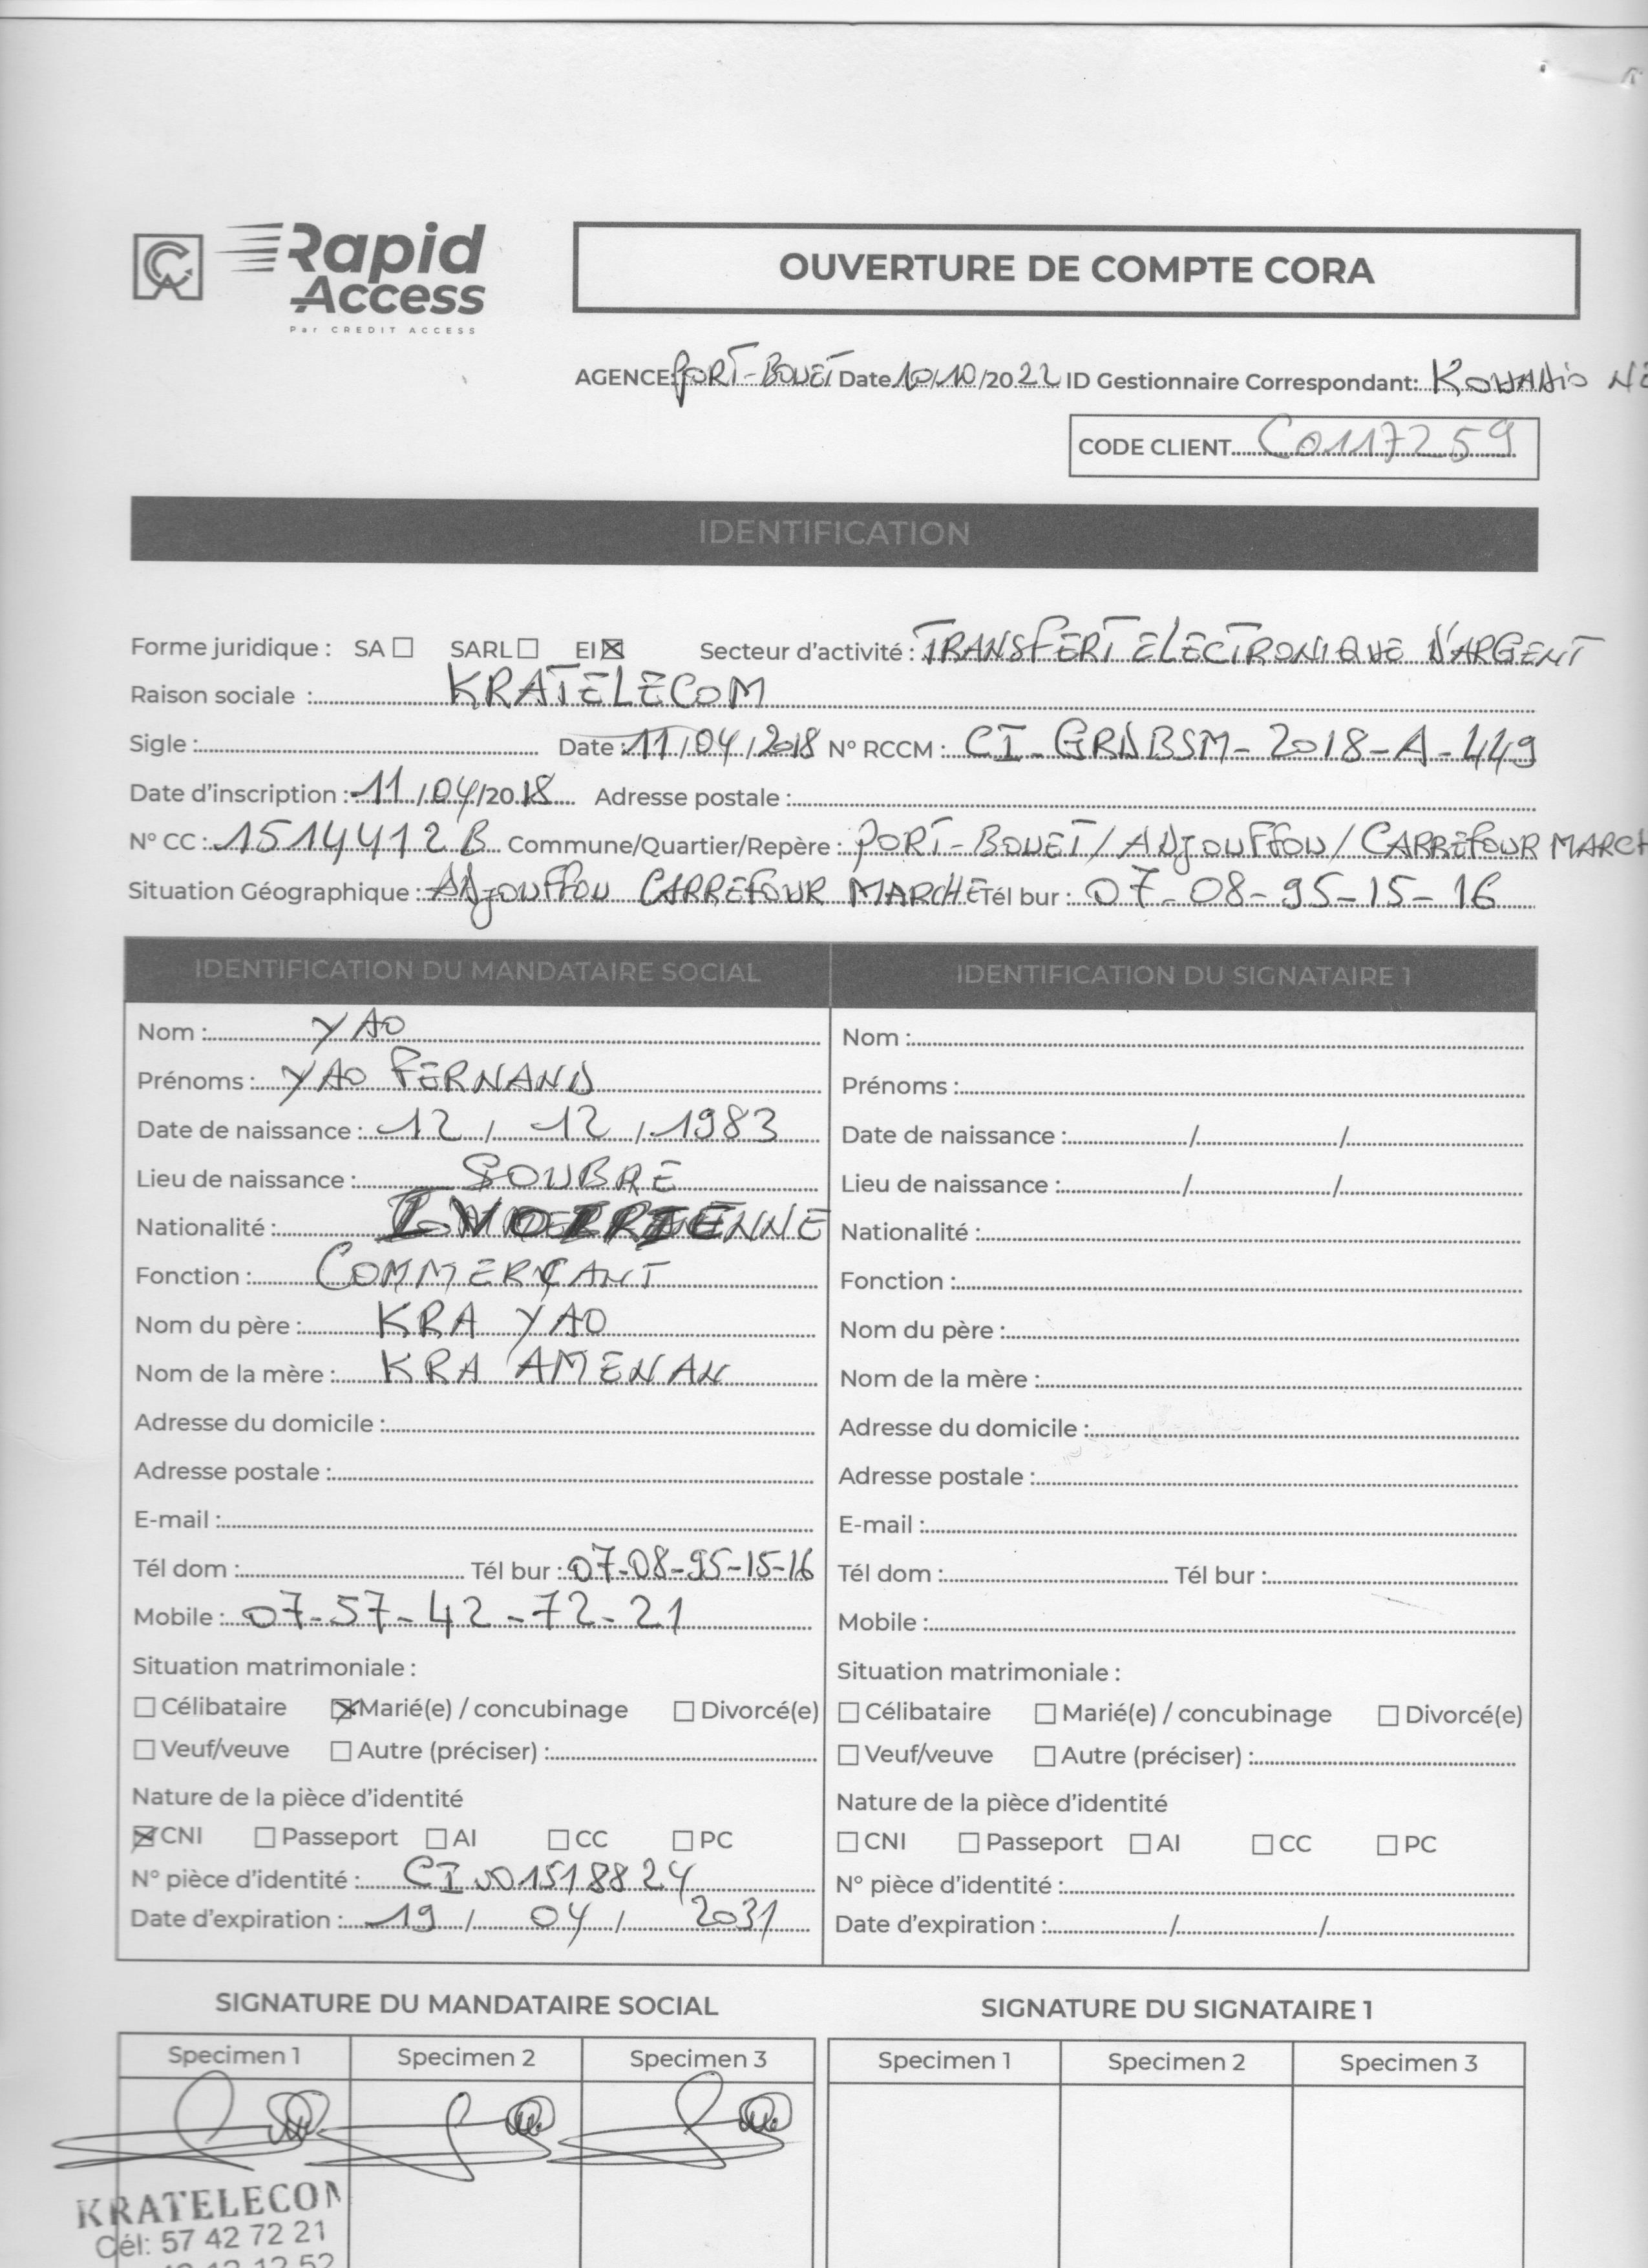 Rapid
Access
Par CREDIT ACCESS
OUVERTURE DE COMPTE CORA
AGENCE: PORT-BOUET Date 10/10/2022 ID Gestionnaire Correspondant:
CODE CLIENT C0117259
IDENTIFICATION
Forme juridique : SA ☐ SARL ☐ EI ☒ Secteur d'activité : TRANSFERT ELECTRONIQUE D'ARGENT
Raison sociale : KRATELECOM
Sigle : Date : 11/04/2018 N° RCCM : CI-GRDBSM-2018-A-449
Date d'inscription : 11/04/2018 Adresse postale :
N° CC : 1514412 B Commune/Quartier/Repère : PORT-BOUET/ADJOUFFOU/CARREFOUR MARCH
Situation Géographique : ADJOUFFOU CARREFOUR MARCHE Tél bur : 07-08-95-15-16
IDENTIFICATION DU MANDATAIRE SOCIAL
Nom : YAO
Prénoms : YAO FERNAND
Date de naissance : 12/12/1983
Lieu de naissance : SOUBRE
Nationalité : IVOIRIENNE
Fonction : COMMERÇANT
Nom du père : KRA YAO
Nom de la mère : KRA AMENAN
Adresse du domicile :
Adresse postale :
E-mail :
Tél dom : Tél bur : 07-08-95-15-16
Mobile : 07-57-42-72-21
Situation matrimoniale :
☐ Célibataire ☒ Marié(e) / concubinage ☐ Divorcé(e)
☐ Veuf/veuve ☐ Autre (préciser) :
Nature de la pièce d'identité
☒ CNI ☐ Passeport ☐ AI ☐ CC ☐ PC
N° pièce d'identité :
Date d'expiration : 19/04/2031
IDENTIFICATION DU SIGNATAIRE 1
Nom :
Prénoms :
Date de naissance : / /
Lieu de naissance : / /
Nationalité :
Fonction :
Nom du père :
Nom de la mère :
Adresse du domicile :
Adresse postale :
E-mail :
Tél dom : Tél bur :
Mobile :
Situation matrimoniale :
☐ Célibataire ☐ Marié(e) / concubinage ☐ Divorcé(e)
☐ Veuf/veuve ☐ Autre (préciser) :
Nature de la pièce d'identité
☐ CNI ☐ Passeport ☐ AI ☐ CC ☐ PC
N° pièce d'identité :
Date d'expiration : / /
SIGNATURE DU MANDATAIRE SOCIAL
Specimen 1 Specimen 2 Specimen 3
KRATELECOM
Cél: 57 42 72 21
SIGNATURE DU SIGNATAIRE 1
Specimen 1 Specimen 2 Specimen 3